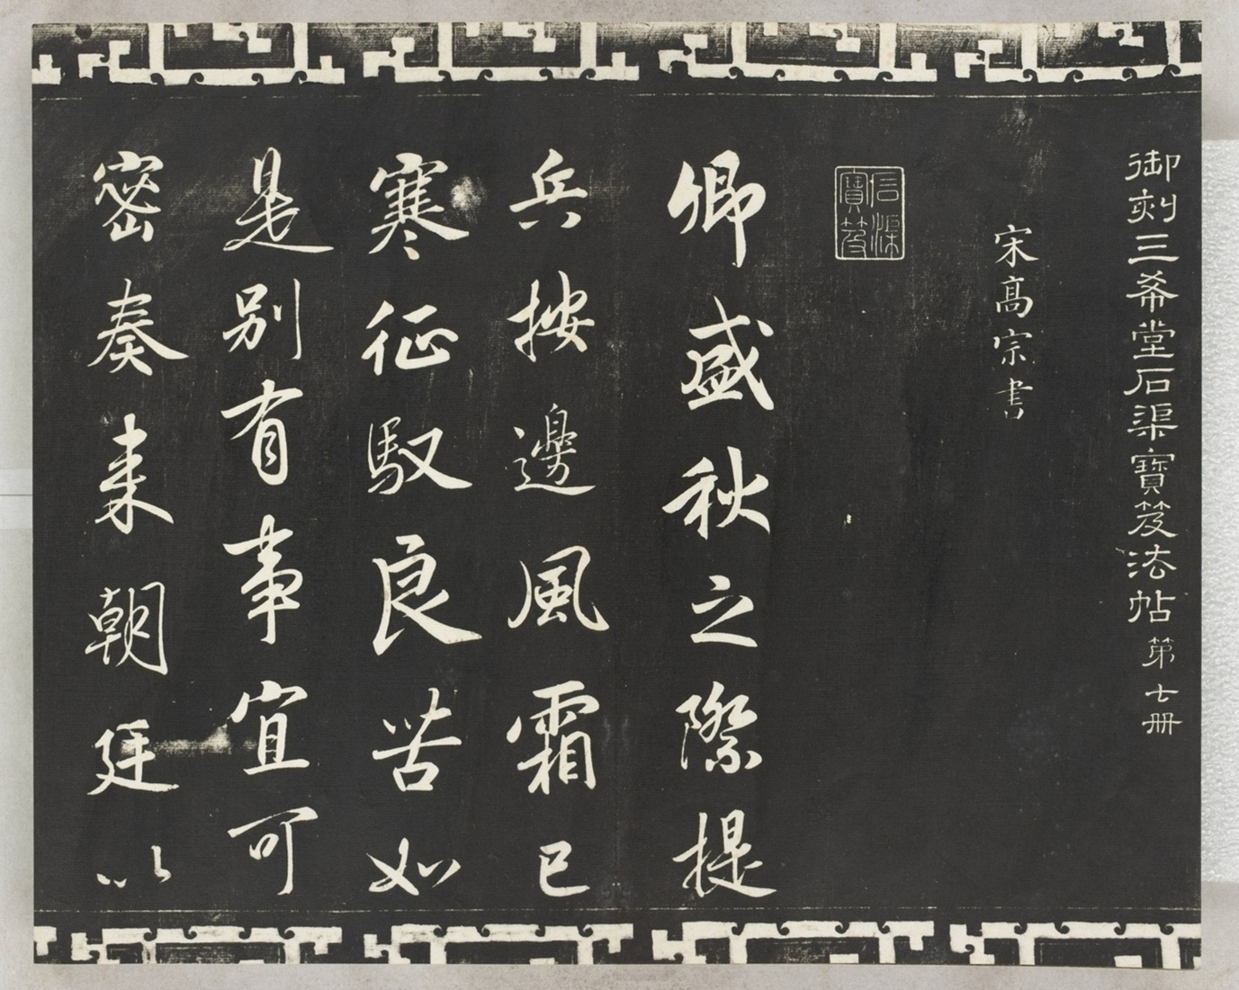 御刻三希堂石渠寶笈法帖第七冊
宋高宗書
石渠
寶笈
卿盛秋之際提
兵按邊風霜已
寒征馭良苦如
是別有事宜可
密奏来朝廷以